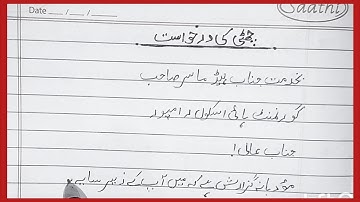 Saathi
Date ___/___/___
چھٹی کی درخواست
بخدمت جناب ہیڈ ماسٹر صاحب
گورنمنٹ ہائی اسکول رامپور
جناب عالی!
مؤدبانہ گزارش ہے کہ میں آپ کے زیر سایہ